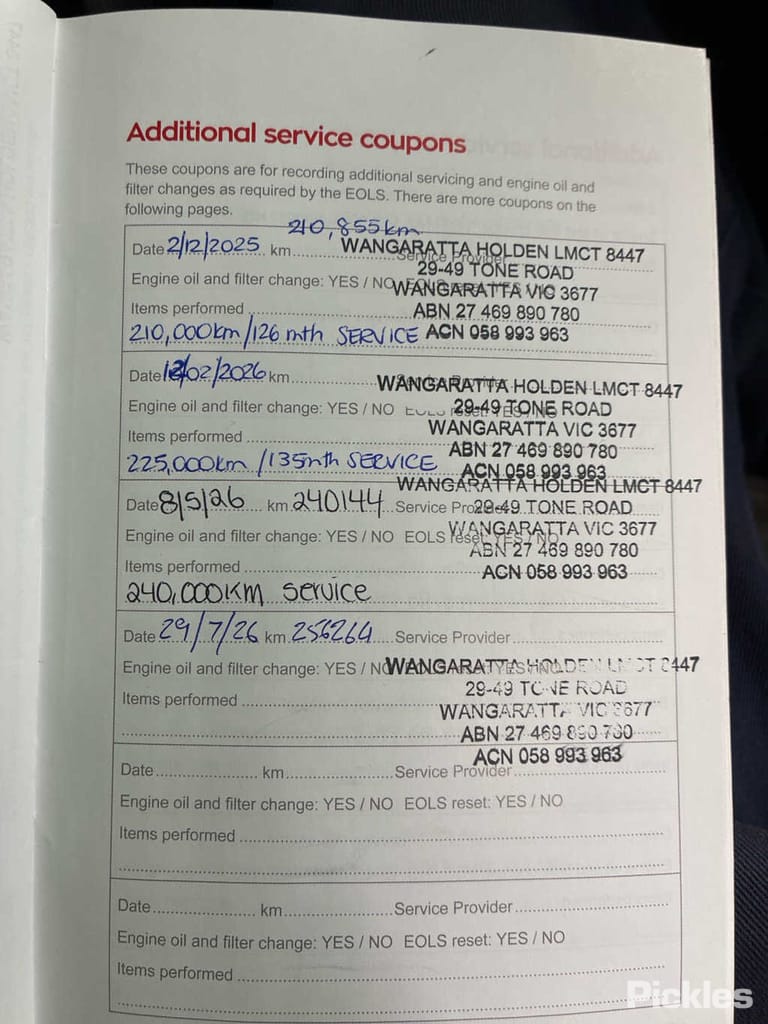 Additional service coupons
These coupons are for recording additional servicing and engine oil and
filter changes as required by the EOLS. There are more coupons on the
following pages.
210,855km
Date 2/12/2025 km WANGARATTA HOLDEN LMCT 8447
Service Provider
29-49 TONE ROAD
Engine oil and filter change: YES / NO
WANGARATTA VIC 3677
Items performed ABN 27 469 890 780
210,000km/126 mth SERVICE ACN 058 993 963
Date 12/02/2026 km WANGARATTA HOLDEN LMCT 8447
Engine oil and filter change: YES / NO 29-49 TONE ROAD
WANGARATTA VIC 3677
Items performed ABN 27 469 890 780
225,000km /135mth SERVICE ACN 058 993 963
WANGARATTA HOLDEN LMCT 8447
Date 8/5/26 km 240144 Service Provider 29-49 TONE ROAD
Engine oil and filter change: YES / NO EOLS reset: YES / NO WANGARATTA VIC 3677
ABN 27 469 890 780
Items performed ACN 058 993 963
240,000KM service
Date 29/7/26 km 256264 Service Provider
Engine oil and filter change: YES / NO WANGARATTA HOLDEN LMCT 8447
29-49 TONE ROAD
Items performed WANGARATTA VIC 3677
ABN 27 469 890 780
ACN 058 993 963
Date km Service Provider
Engine oil and filter change: YES / NO EOLS reset: YES / NO
Items performed
Date km Service Provider
Engine oil and filter change: YES / NO EOLS reset: YES / NO
Items performed
Pickles